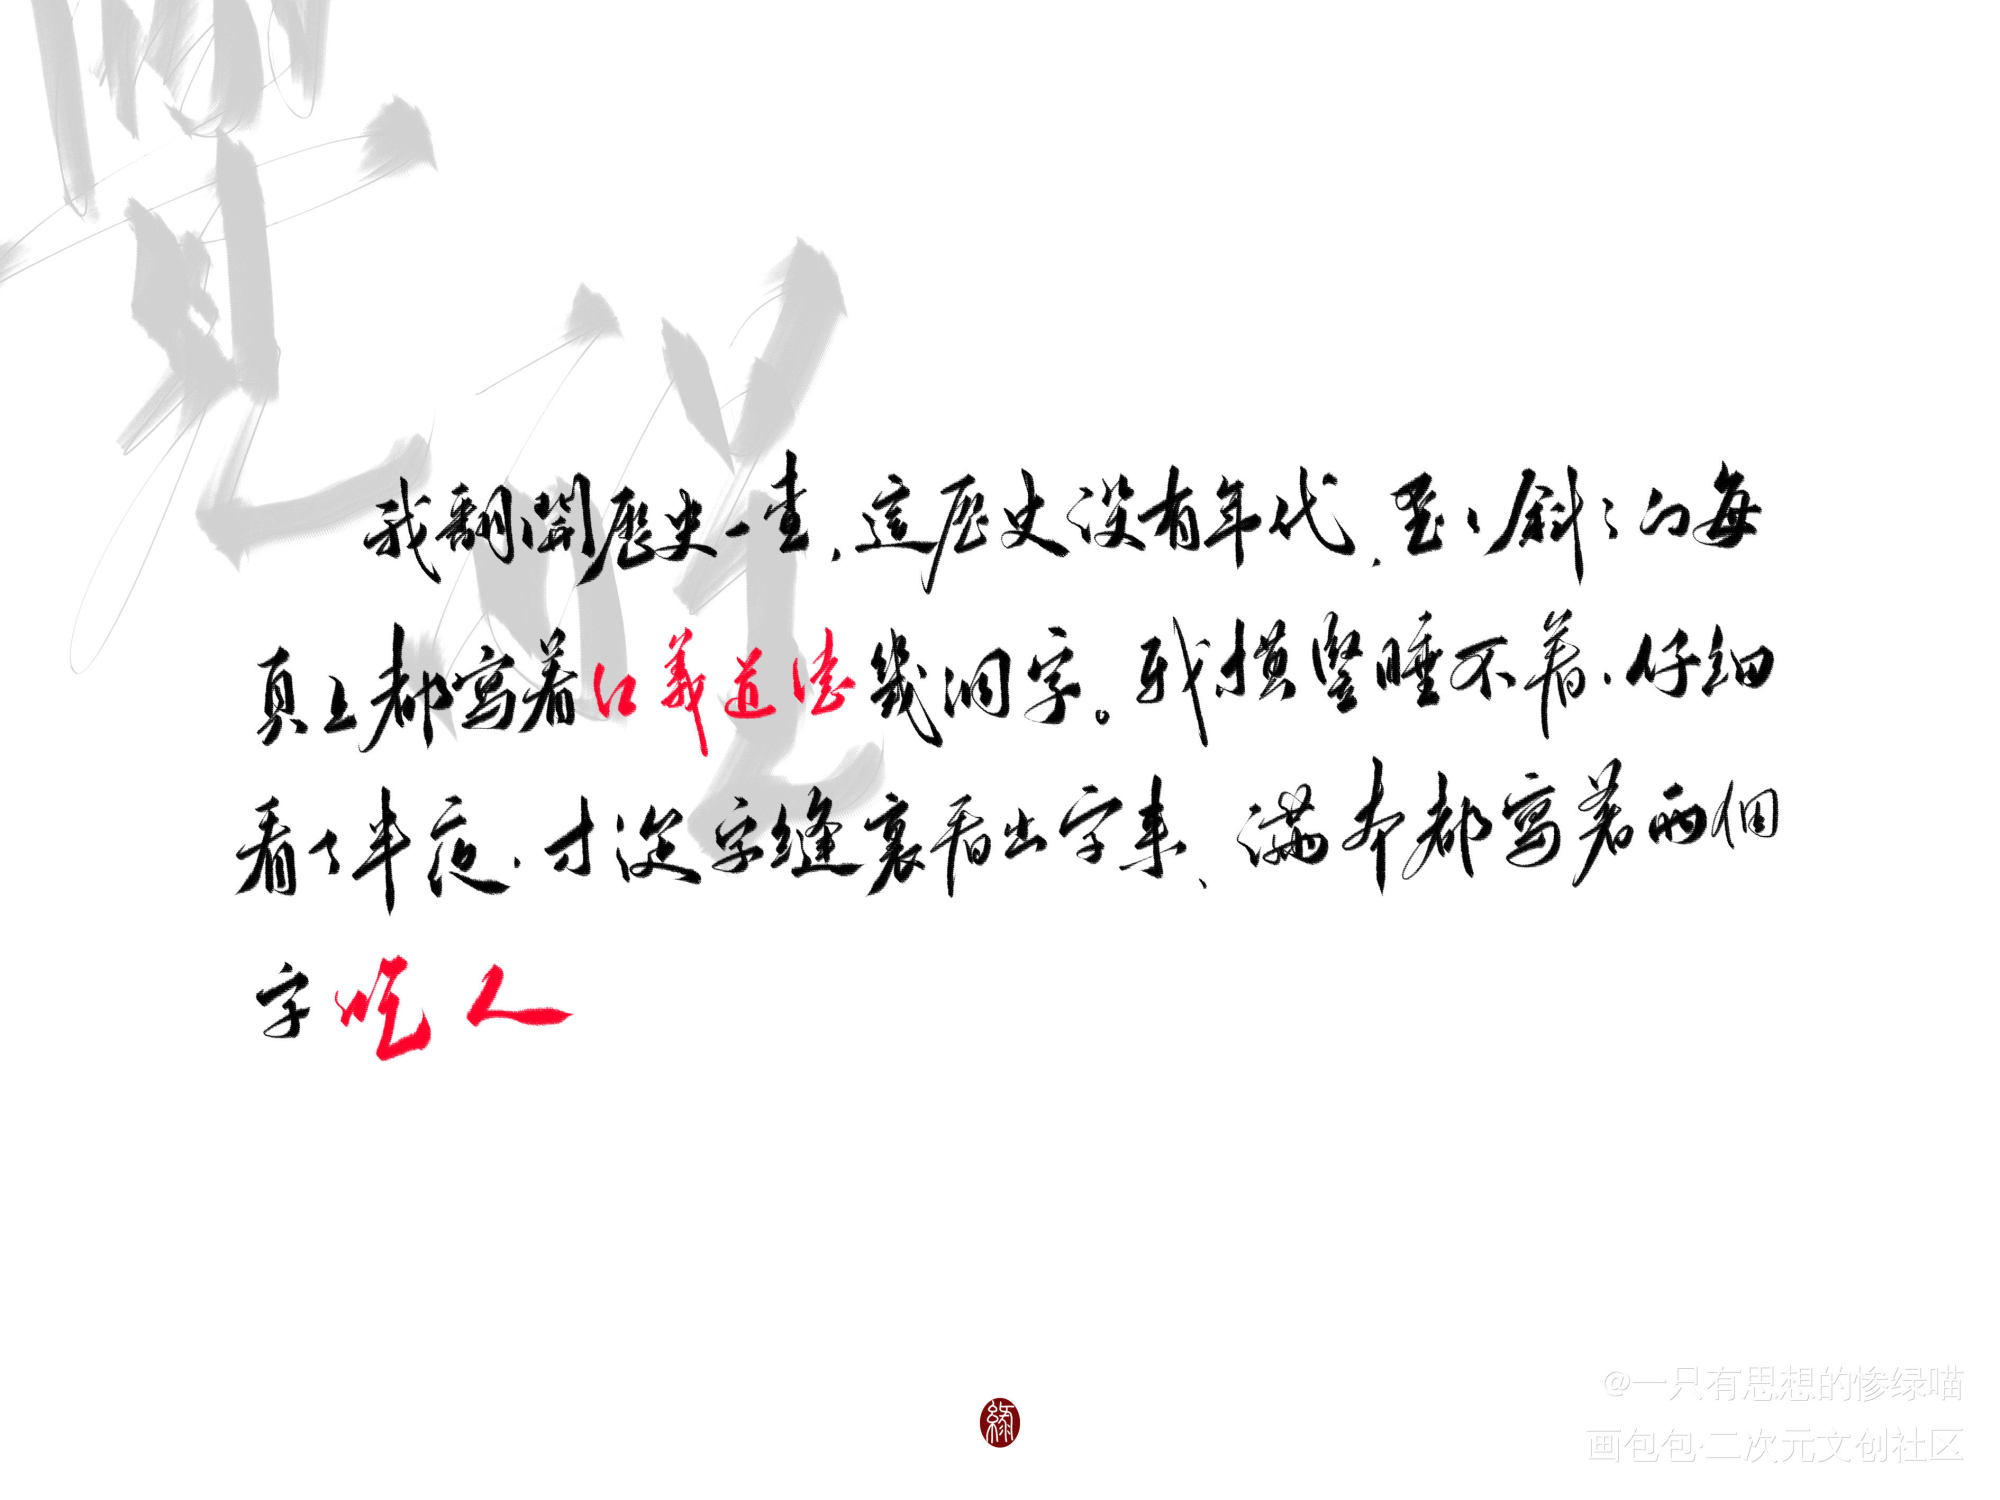 我翻開歷史一查，這歷史没有年代，歪歪斜斜的每
頁上都寫着仁義道德幾個字。我横豎睡不着，仔細
看了半夜，才從字縫裏看出字來、滿本都寫着兩個
字吃人
@一只有思想的惨绿喵
画包包·二次元文创社区